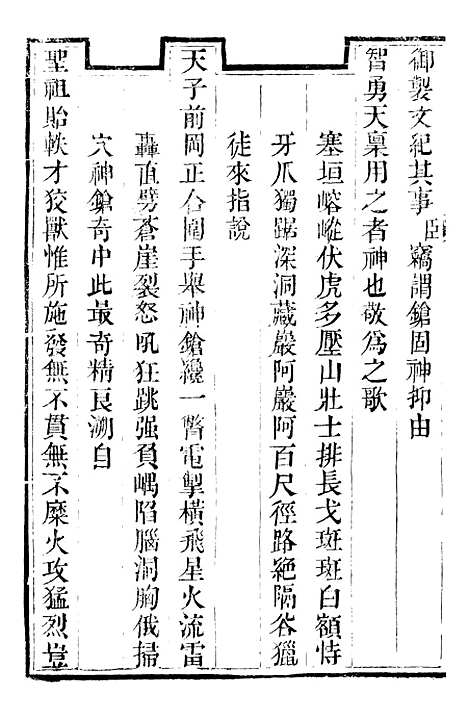 御製文紀其事臣竊謂鎗固神抑由
智勇天稟用之者神也敬為之歌
塞垣嵱嵷伏虎多壓山壯士排長戈斑斑白額恃
牙爪獨踞深洞藏巖阿巖阿百尺徑路絕隔谷獵
徒來指說
天子前岡正合圍手舉神鎗纔一瞥電掣橫飛星火流雷
轟直劈蒼崖裂怒吼狂跳强負嵎陷腦洞胸俄掃
穴神鎗奇中此最奇精良溯自
聖祖貽軼才狡獸惟所施發無不貫無不糜火攻猛烈豈